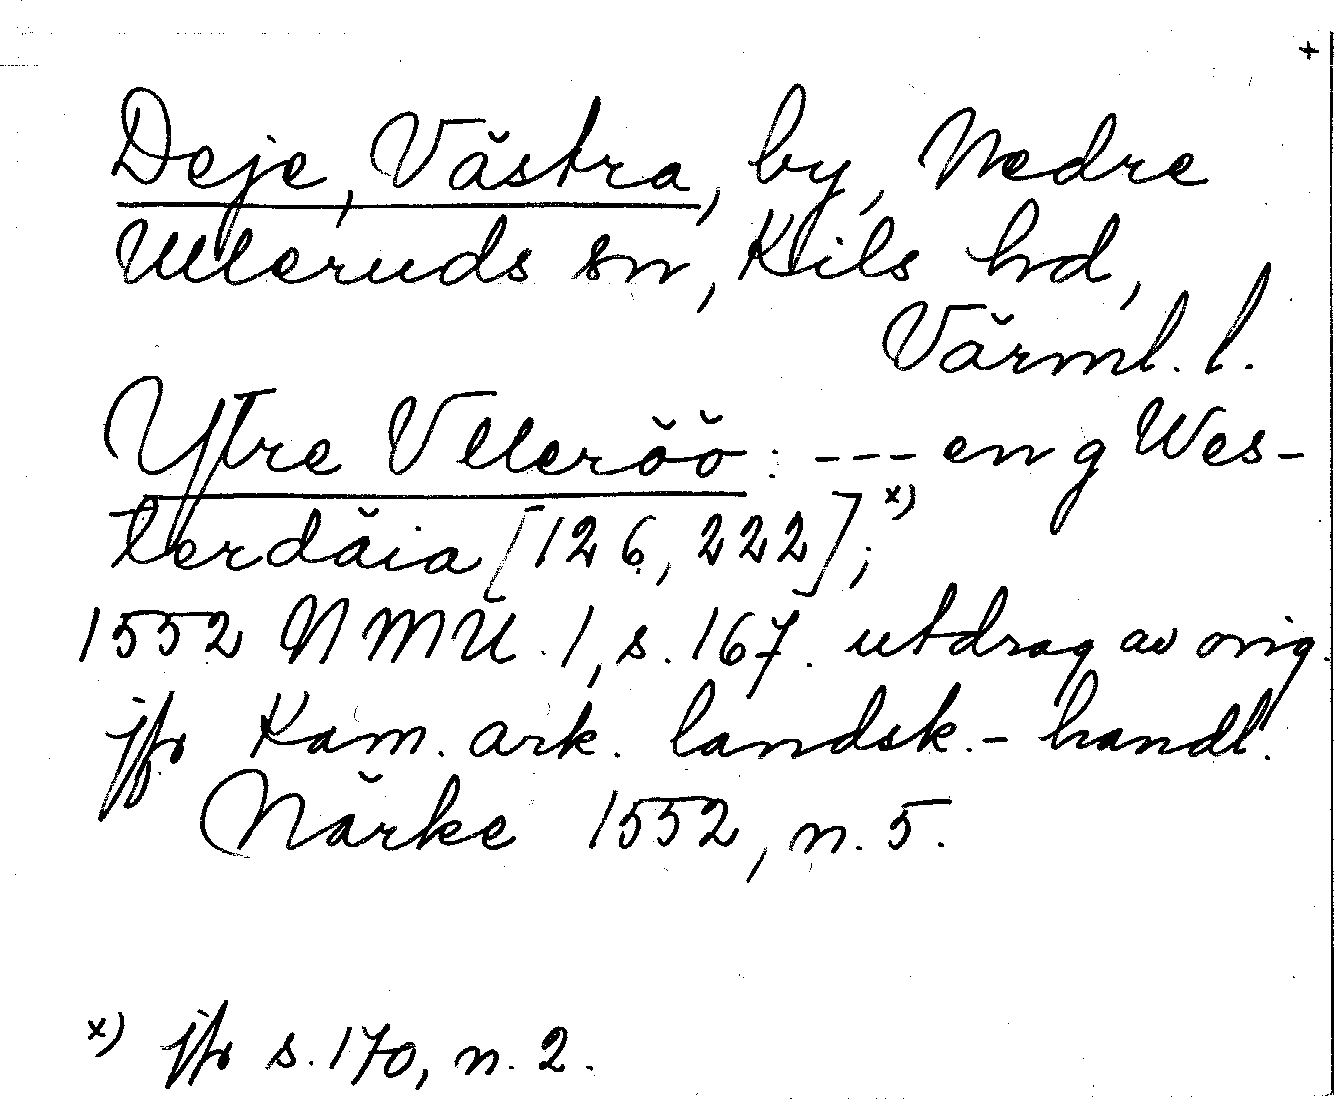 +
Deje, Västra, by, Nedre
Ulleruds sn, Kils hd,
Värml. l.
Ytre Vlleröö: --- en g Wes-
terdäia [126, 222];x)
1552 NMU. 1, s. 167. utdrag av orig.
jfr Kam. ark. landsk.- handl.
Närke 1552, n. 5.
x) jfr s. 170, n. 2.